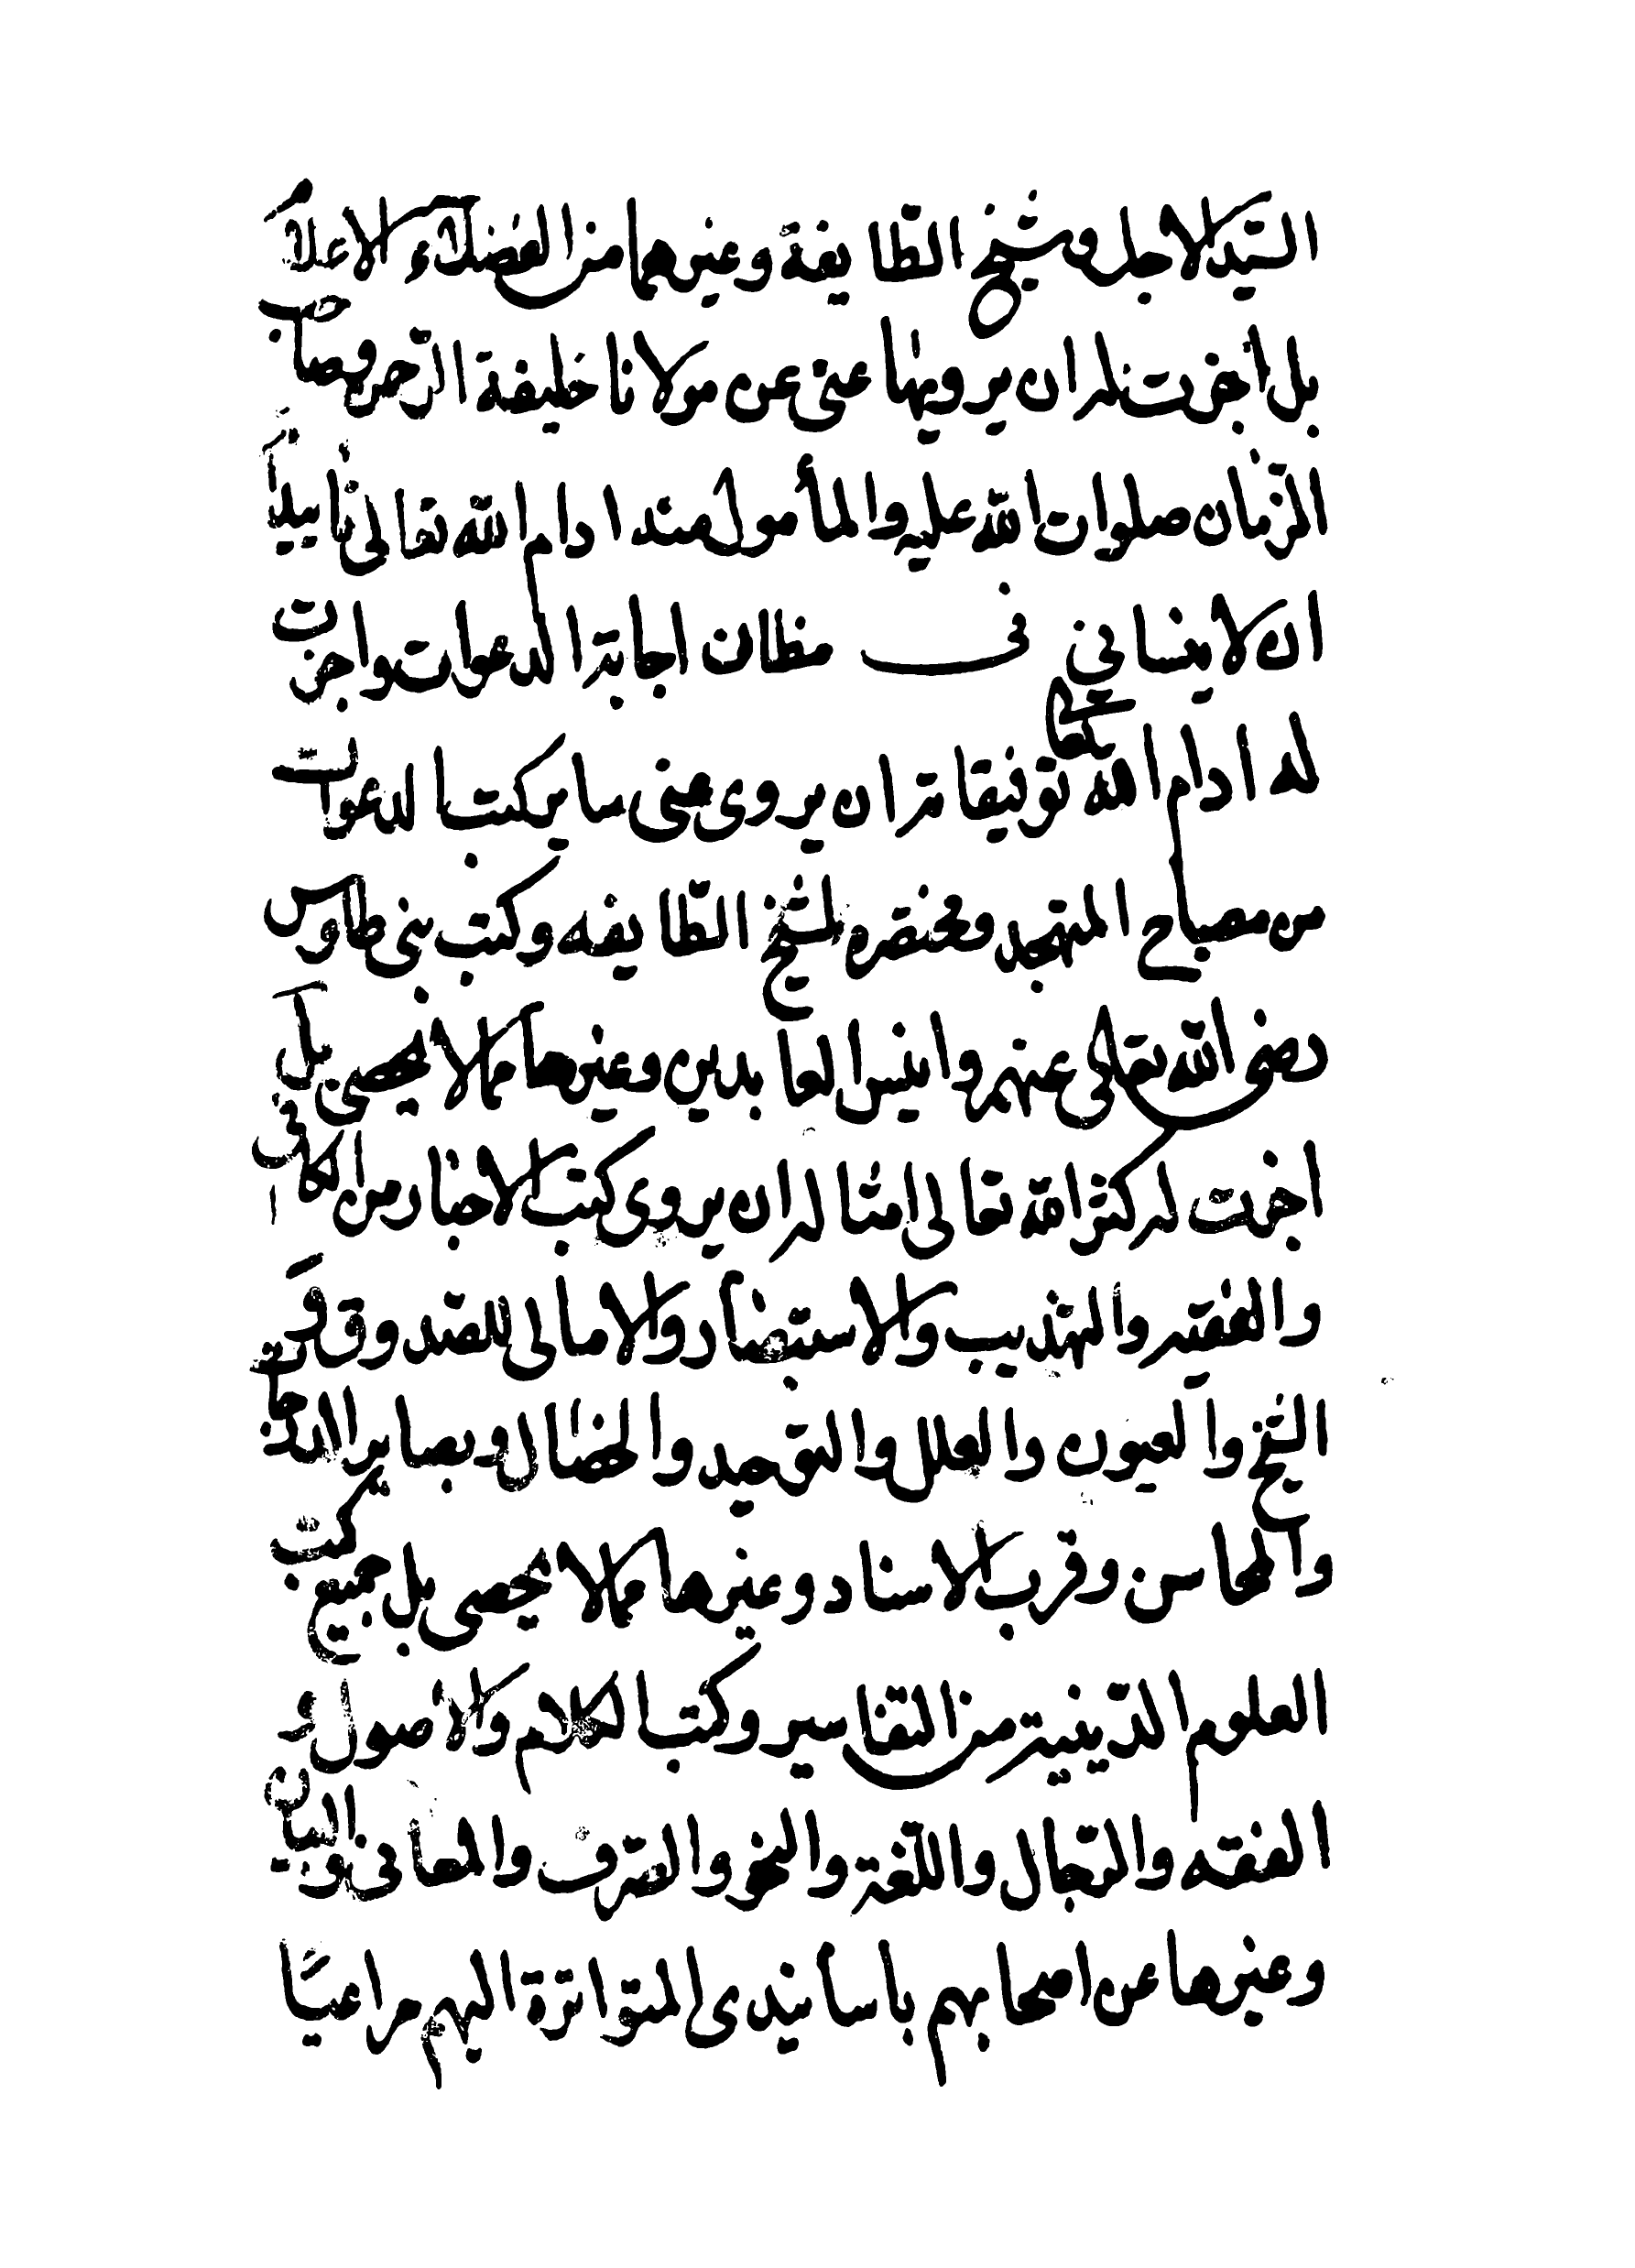 السّيّد الاجل وشيخ الطّايفة وغيرهما من الفضلاء الاعلام
بل أجزت له ان يرويها عنى عن مولانا خليفة الرّحمن وصاحب
الزّمان صلوات اللّه عليه والمأمول منه ادام اللّه تعالى تاييده
ان لا ينساني فى مظان اجابة الدعوات واجزت
له ادام اللّه تعالى توفيقاته ان يروى عنى ساير كتب الدعوات
من مصباح المتهجد ومختصره لشيخ الطّايفه وكتب بنى طاوس
رضى اللّه تعالى عنهم وانيس العابدين وغيرها مما لا يحصى بل
اجزت له كثر اللّه تعالى امثاله ان يروى كتب الاخبار من الكافى
والفقيه والتهذيب والاستبصار والامالى للصّدوق و
الشيخ والعيون والعلل والتوحيد والخصال وبصاير الدرجات
والمحاسن وقرب الاسناد وغيرها مما لا يحصى بل جميع كتب
العلوم الدّينية من التفاسير وكتب الكلام والاصول و
الفقه والرّجال واللّغة والنحو والصّرف والمعانى والبيان
وغيرها عن اصحابهم بأسانيدى المتواترة اليهم مراعيًا